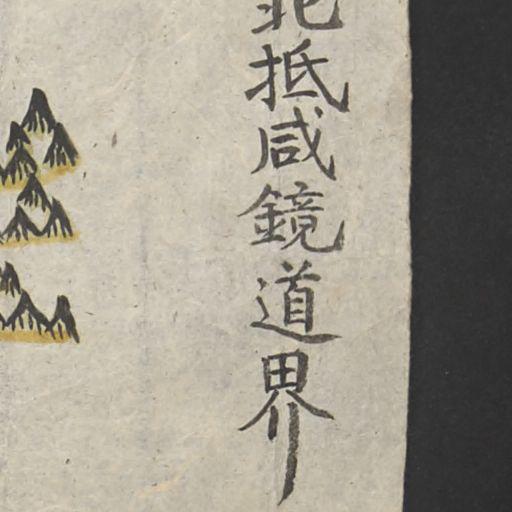 北抵咸鏡道界